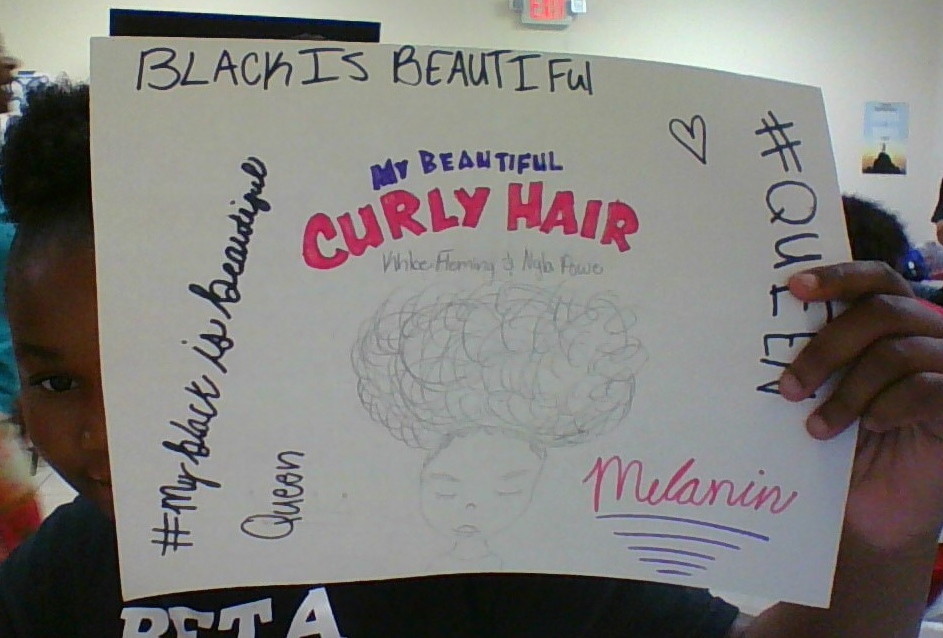 EXIT
BLACK IS BEAUTIFUl
#QUEEN
MY BEAUTIFUL
CURLY HAIR
Fleming & Nyla
#My black is beautiful
Queen
Melanin
BETA